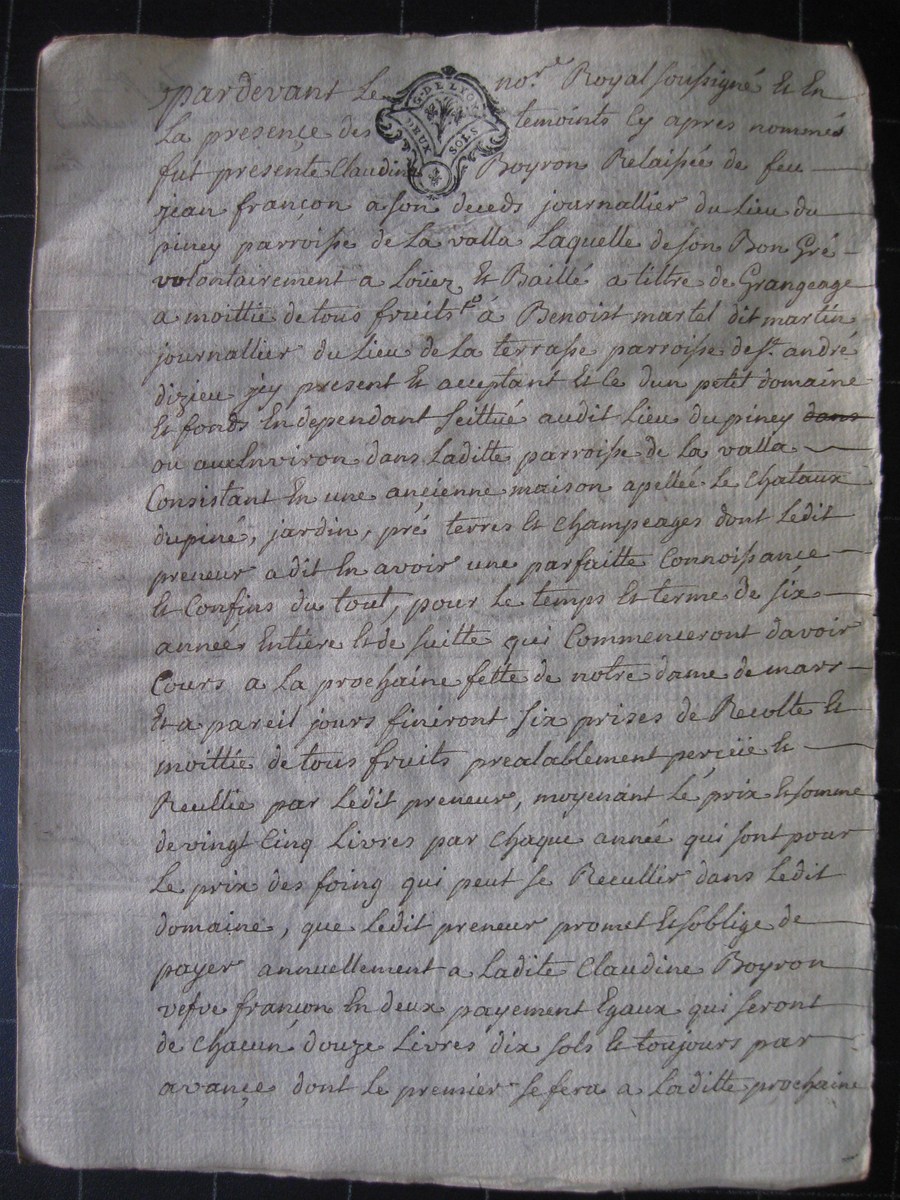 pardevant Le no.re Royal soussigné Et En
G. DE LYON
DEUX SOLS
La presençe des temoints Cy apres nommés
fut presente Claudine Boyron Relaissée de feu
jean françon a son deceds journallier du Lieu du
piney parroisse de La valla Laquelle de son Bon Gré
volontairement a Loüez Et Baillé a tiltre de Grangeage
a moittie de tous fruits à Benoist martel dit martin
journallier du Lieu de La terrasse parroisse de St. andré
dizieu jcy present Et acceptant Et Le dun petit domaine
Et fonds En dependant seittué audit Lieu du piney dans
ou aux Environ dans Laditte parroisse de La valla
Consistant En une ançienne maison apellée Le Chataux
dupiné, jardin, pré terres Et Champeages dont Ledit
preneur a dit En avoir une parfaitte Connoissance
Et Confins du tout, pour Le temps Et terme de six
années Entiere Et de suitte qui Commenceront davoir
Cours a La prochaine fette de notre dame de mars
Et a pareil jours finéront six prises de Recolte Et
moittie de tous fruits prealablement perçüe Et
Reullie par Ledit preneur, moyenant Le prix Et somme
de vingt Cinq Livres par Chaque année qui sont pour
Le prix des foing qui peut se Recullir dans Ledit
domaine, que Ledit preneur promet Et soblige de
payer annuellement a Ladite Claudine Boyron
vefve françon En deux payement Egaux qui seront
de Chacun douze Livres dix sols Et toujours par
avançe dont Le premier se fera a Laditte prochaine